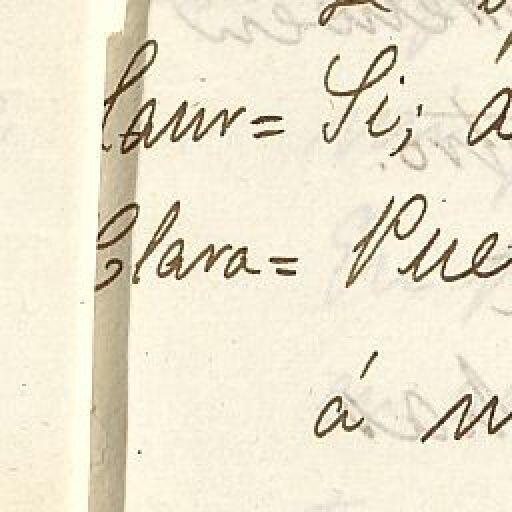 Laur= Si; a
Clara= Pue
á m